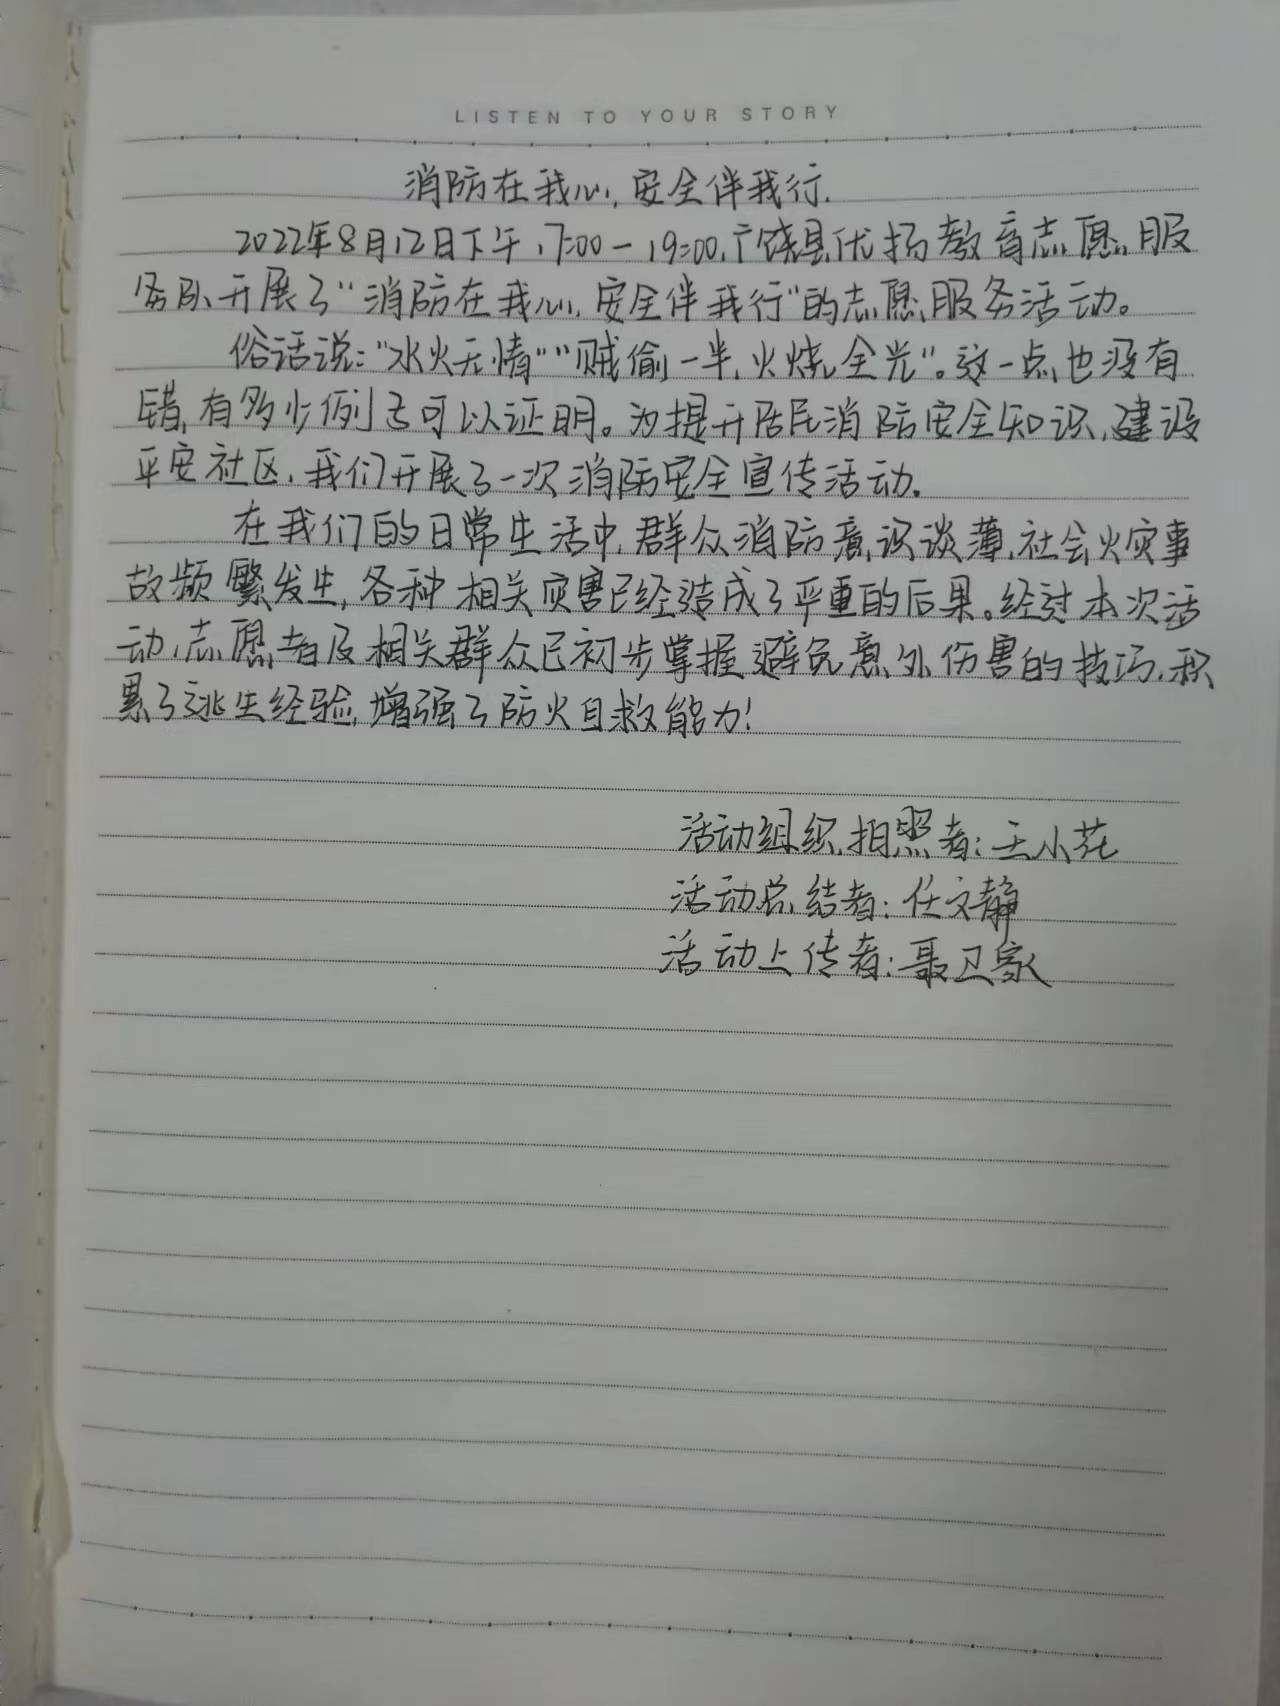 LISTEN TO YOUR STORY
消防在我心,安全伴我行.
2022年8月12日下午17:00-19:00,广饶县优扬教育志愿服
务队开展了“消防在我心,安全伴我行”的志愿服务活动。
俗话说:“水火无情”“贼偷一半,火烧全光”。这一点也没有
错,有多少例子可以证明。为提升居民消防安全知识,建设
平安社区,我们开展了一次消防安全宣传活动.
在我们的日常生活中,群众消防意识淡薄,社会火灾事
故频繁发生,各种相关灾害已经造成了严重的后果。经过本次活
动,志愿者及相关群众已初步掌握避免意外伤害的技巧,积
累了逃生经验,增强了防火自救能力!
活动组织,拍照者:王小花
活动总结者:任文静
活动上传者:聂卫家